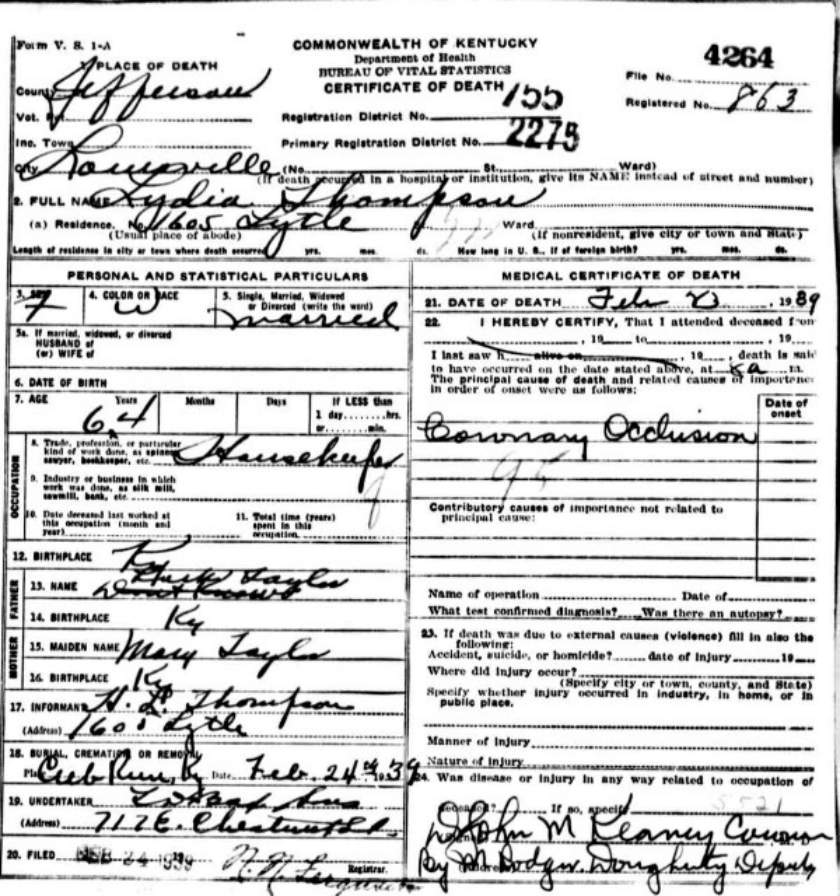 Form V. S. 1-A
COMMONWEALTH OF KENTUCKY
Department of Health
BUREAU OF VITAL STATISTICS
CERTIFICATE OF DEATH
4264
File No.
Registered No. 863
1 PLACE OF DEATH
County Jefferson
Vot. Pct.
Inc. Town
City Louisville (No. St. Ward)
(If death occurred in a hospital or institution, give its NAME instead of street and number)
Registration District No. 755
Primary Registration District No. 2275
2. FULL NAME Lydia Thompson
(a) Residence. No. 1605 Lytle Ward
(Usual place of abode) (If nonresident, give city or town and State)
Length of residence in city or town where death occurred yrs. mos. ds. How long in U. S., if of foreign birth? yrs. mos. ds.
PERSONAL AND STATISTICAL PARTICULARS
3. SEX F
4. COLOR OR RACE W
5. Single, Married, Widowed or Divorced (write the word) married
5a. If married, widowed, or divorced
HUSBAND of
(or) WIFE of
6. DATE OF BIRTH
7. AGE Years Months Days If LESS than
64 1 day hrs.
or min.
OCCUPATION
8. Trade, profession, or particular
kind of work done, as spinner,
sawyer, bookkeeper, etc. Housekeeper
9. Industry or business in which
work was done, as silk mill,
sawmill, bank, etc.
10. Date deceased last worked at
this occupation (month and
year)
11. Total time (years)
spent in this
occupation
12. BIRTHPLACE Ky
FATHER
13. NAME Taylor
Don't Know
14. BIRTHPLACE Ky
MOTHER
15. MAIDEN NAME Mary Taylor
16. BIRTHPLACE Ky
17. INFORMANT H. L. Thompson
(Address) 1605 Lytle
18. BURIAL, CREMATION OR REMOVAL
Place Run, Ky Date Feb. 24 1939
19. UNDERTAKER
(Address) 717 E. Chestnut St.
20. FILED FEB 24 1939
Registrar.
MEDICAL CERTIFICATE OF DEATH
21. DATE OF DEATH Feb 23, 1939
22. I HEREBY CERTIFY, That I attended deceased from
, 19 to , 19
I last saw h alive on , 19 , death is said
to have occurred on the date stated above, at 8a m.
The principal cause of death and related causes of importance
in order of onset were as follows:
Date of onset
Coronary Occlusion
95
Contributory causes of importance not related to
principal cause:
Name of operation Date of
What test confirmed diagnosis? Was there an autopsy?
23. If death was due to external causes (violence) fill in also the
following:
Accident, suicide, or homicide? date of injury 19
Where did injury occur?
(Specify city or town, county, and State)
Specify whether injury occurred in industry, in home, or in
public place.
Manner of injury
Nature of injury
24. Was disease or injury in any way related to occupation of
deceased? If so, specify
5521
John M Keaney Coroner
By M Dougherty Deputy